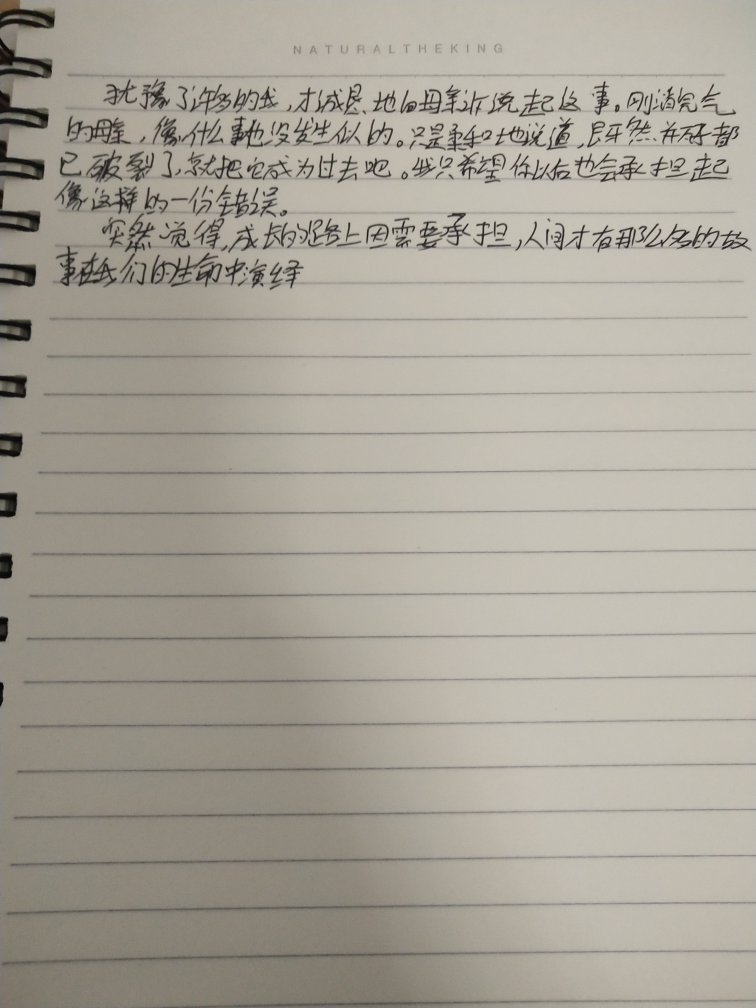 NATURALTHEKING
犹豫了许多的我，才诚恳地向母亲诉说起这事。刚消完气
的母亲，像什么事也没发生似的。只是柔和地说道，既然并不都
已破裂了，就把它成为过去吧。我只希望你以后也会承担起
像这样的一份错误。
突然觉得，成长的路上因需要承担，人间才有那么多的故
事在我们的生命中演绎